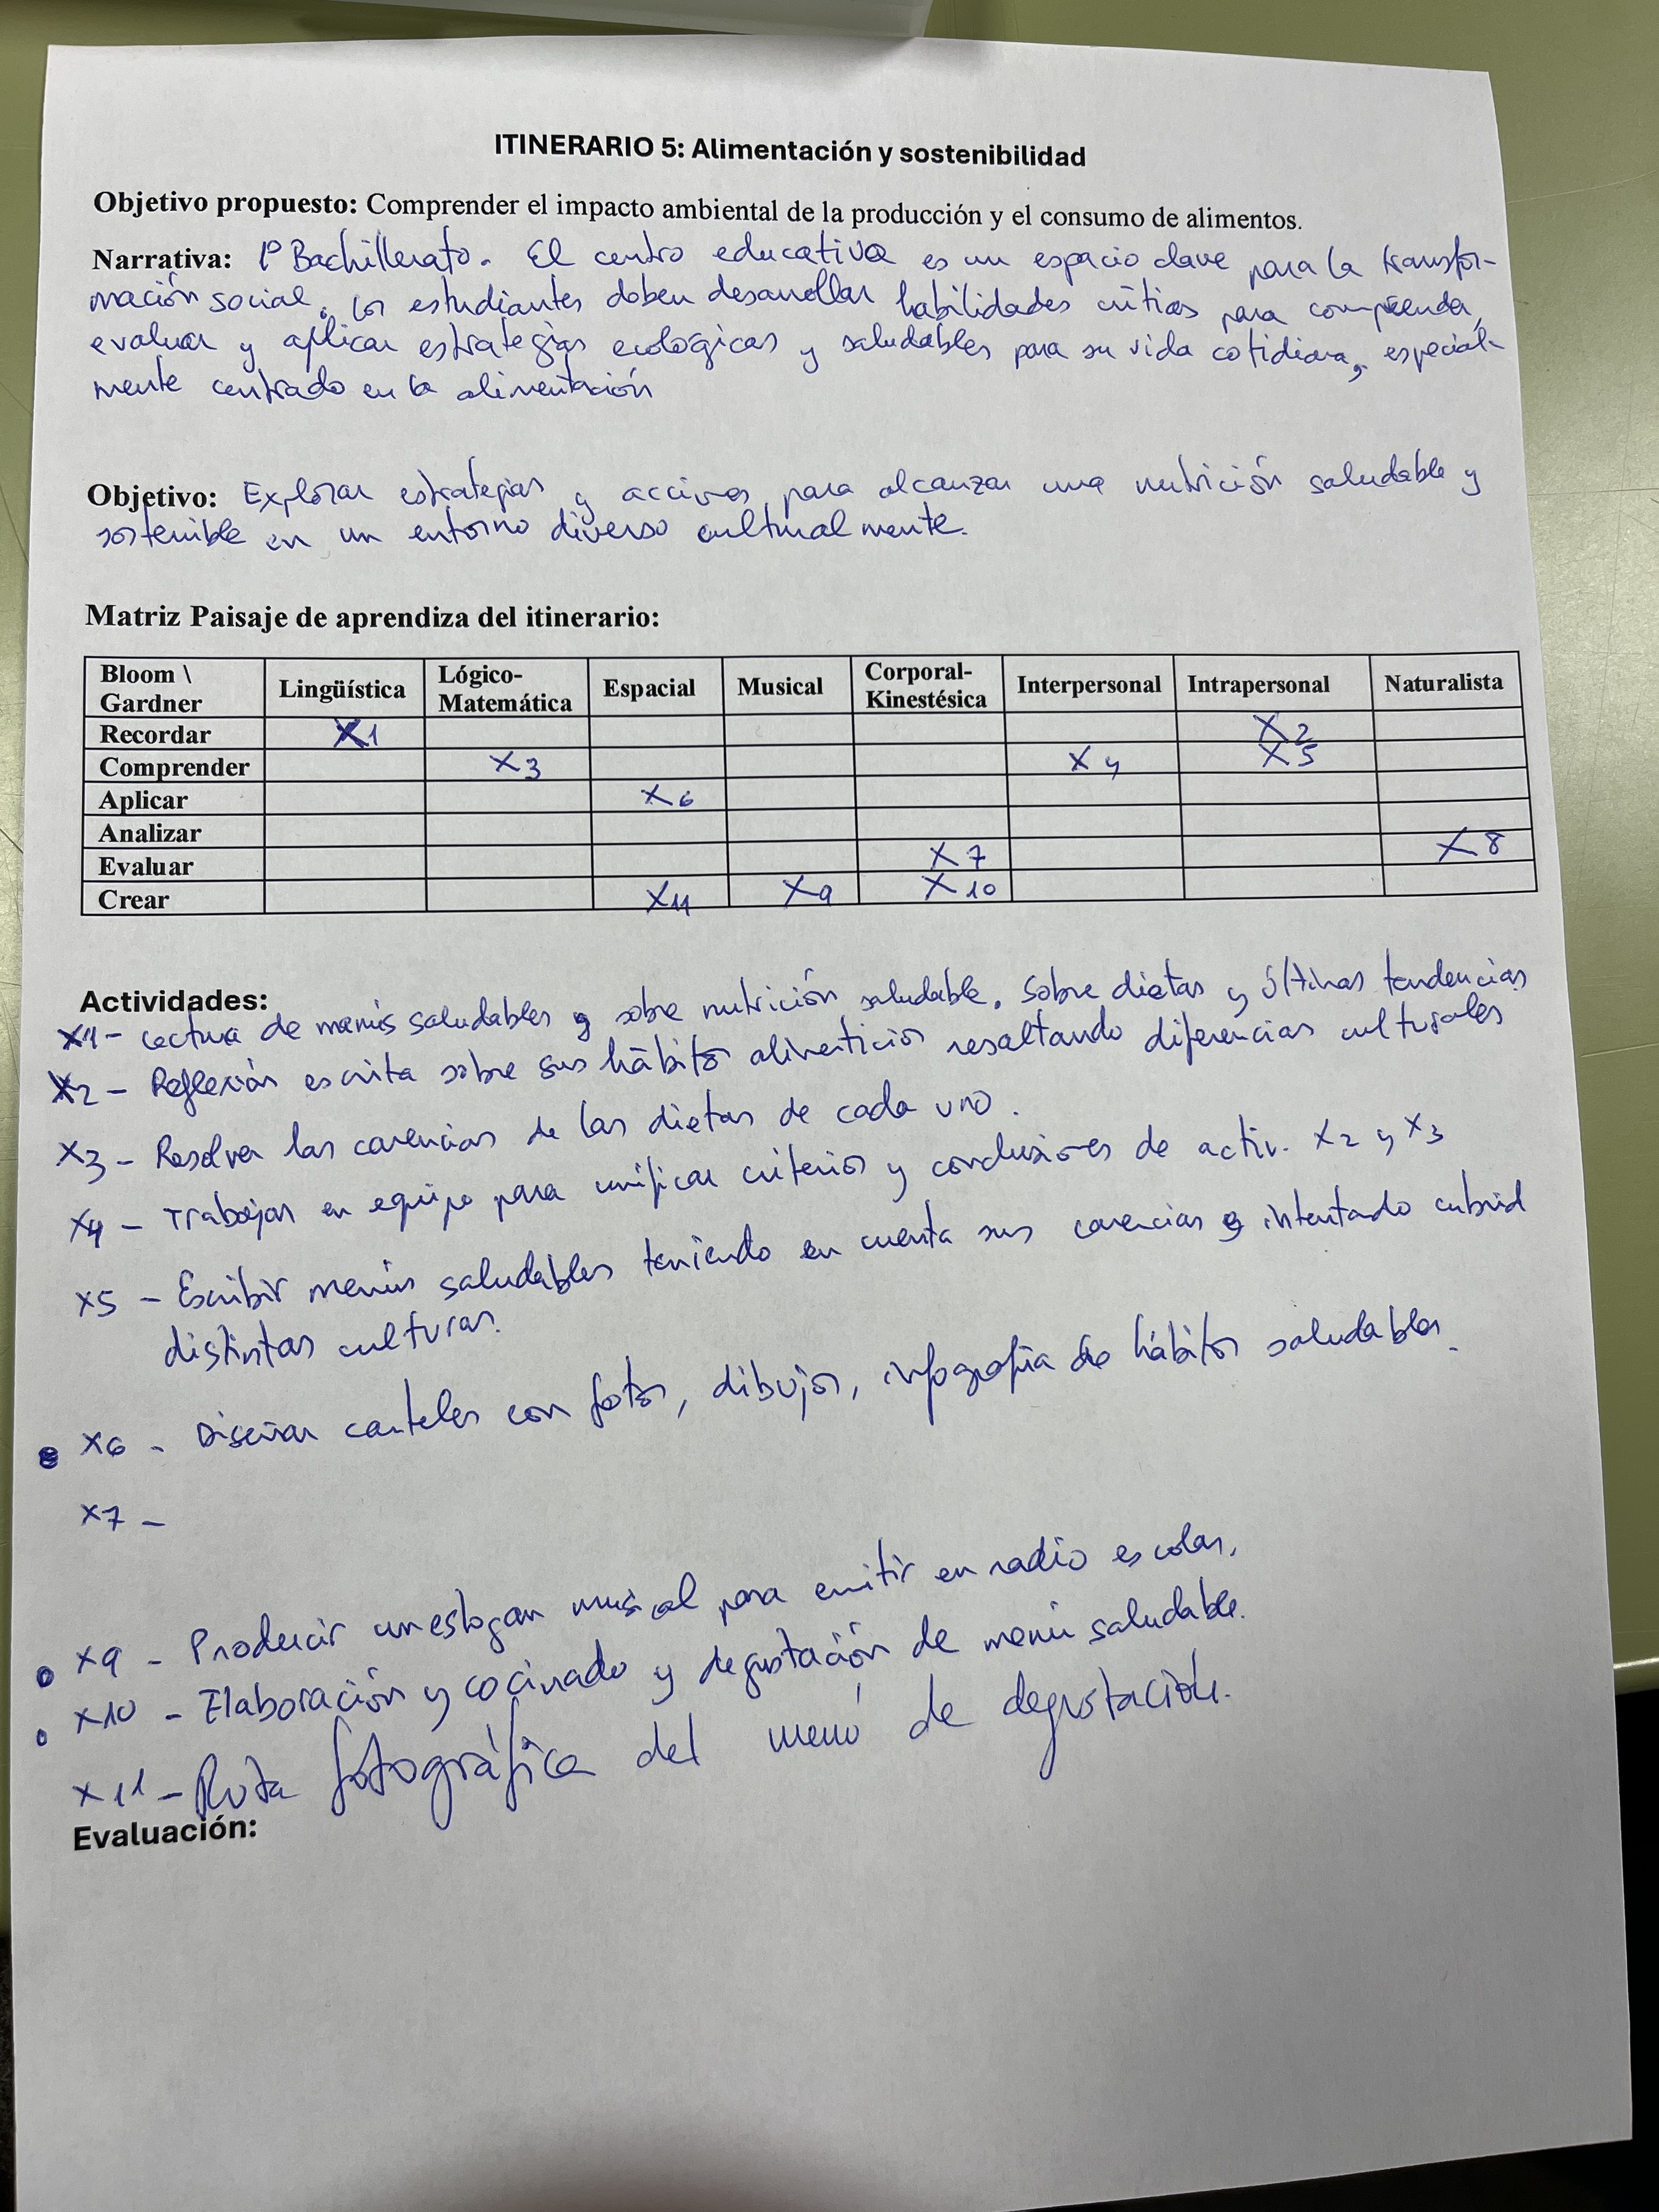 ITINERARIO 5: Alimentación y sostenibilidad
Objetivo propuesto: Comprender el impacto ambiental de la producción y el consumo de alimentos.
Narrativa: 1º Bachillerato. El centro educativo es un espacio clave para la transfor-
mación social. Los estudiantes deben desarrollar habilidades críticas para comprender,
evaluar y aplicar estrategias ecológicas y saludables para su vida cotidiana, especial-
mente centrado en la alimentación
Objetivo: Explorar estrategias y acciones para alcanzar una nutrición saludable y
sostenible en un entorno diverso culturalmente.
Matriz Paisaje de aprendiza del itinerario:
Bloom \ Gardner Lingüística Lógico-Matemática Espacial Musical Corporal-Kinestésica Interpersonal Intrapersonal Naturalista
Recordar X1 X2
Comprender X3 X4 X5
Aplicar X6
Analizar
Evaluar X7 X8
Crear X11 X9 X10
Actividades:
X1- Lectura de menús saludables y sobre nutrición saludable. Sobre dietas y últimas tendencias
X2 - Reflexión escrita sobre sus hábitos alimenticios resaltando diferencias culturales
X3 - Resolver las carencias de las dietas de cada uno.
X4 - Trabajar en equipo para unificar criterios y conclusiones de activ. X2 y X3
X5 - Escribir menús saludables teniendo en cuenta sus carencias e intentado cubrid
distintas culturas.
X6 - Diseñar carteles con fotos, dibujos, infografía de hábitos saludables.
X7 -
X9 - Producir un eslogan musical para emitir en radio escolar.
X10 - Elaboración y cocinado y degustación de menú saludable.
X11 - Ruta fotográfica del menú de degustación.
Evaluación: